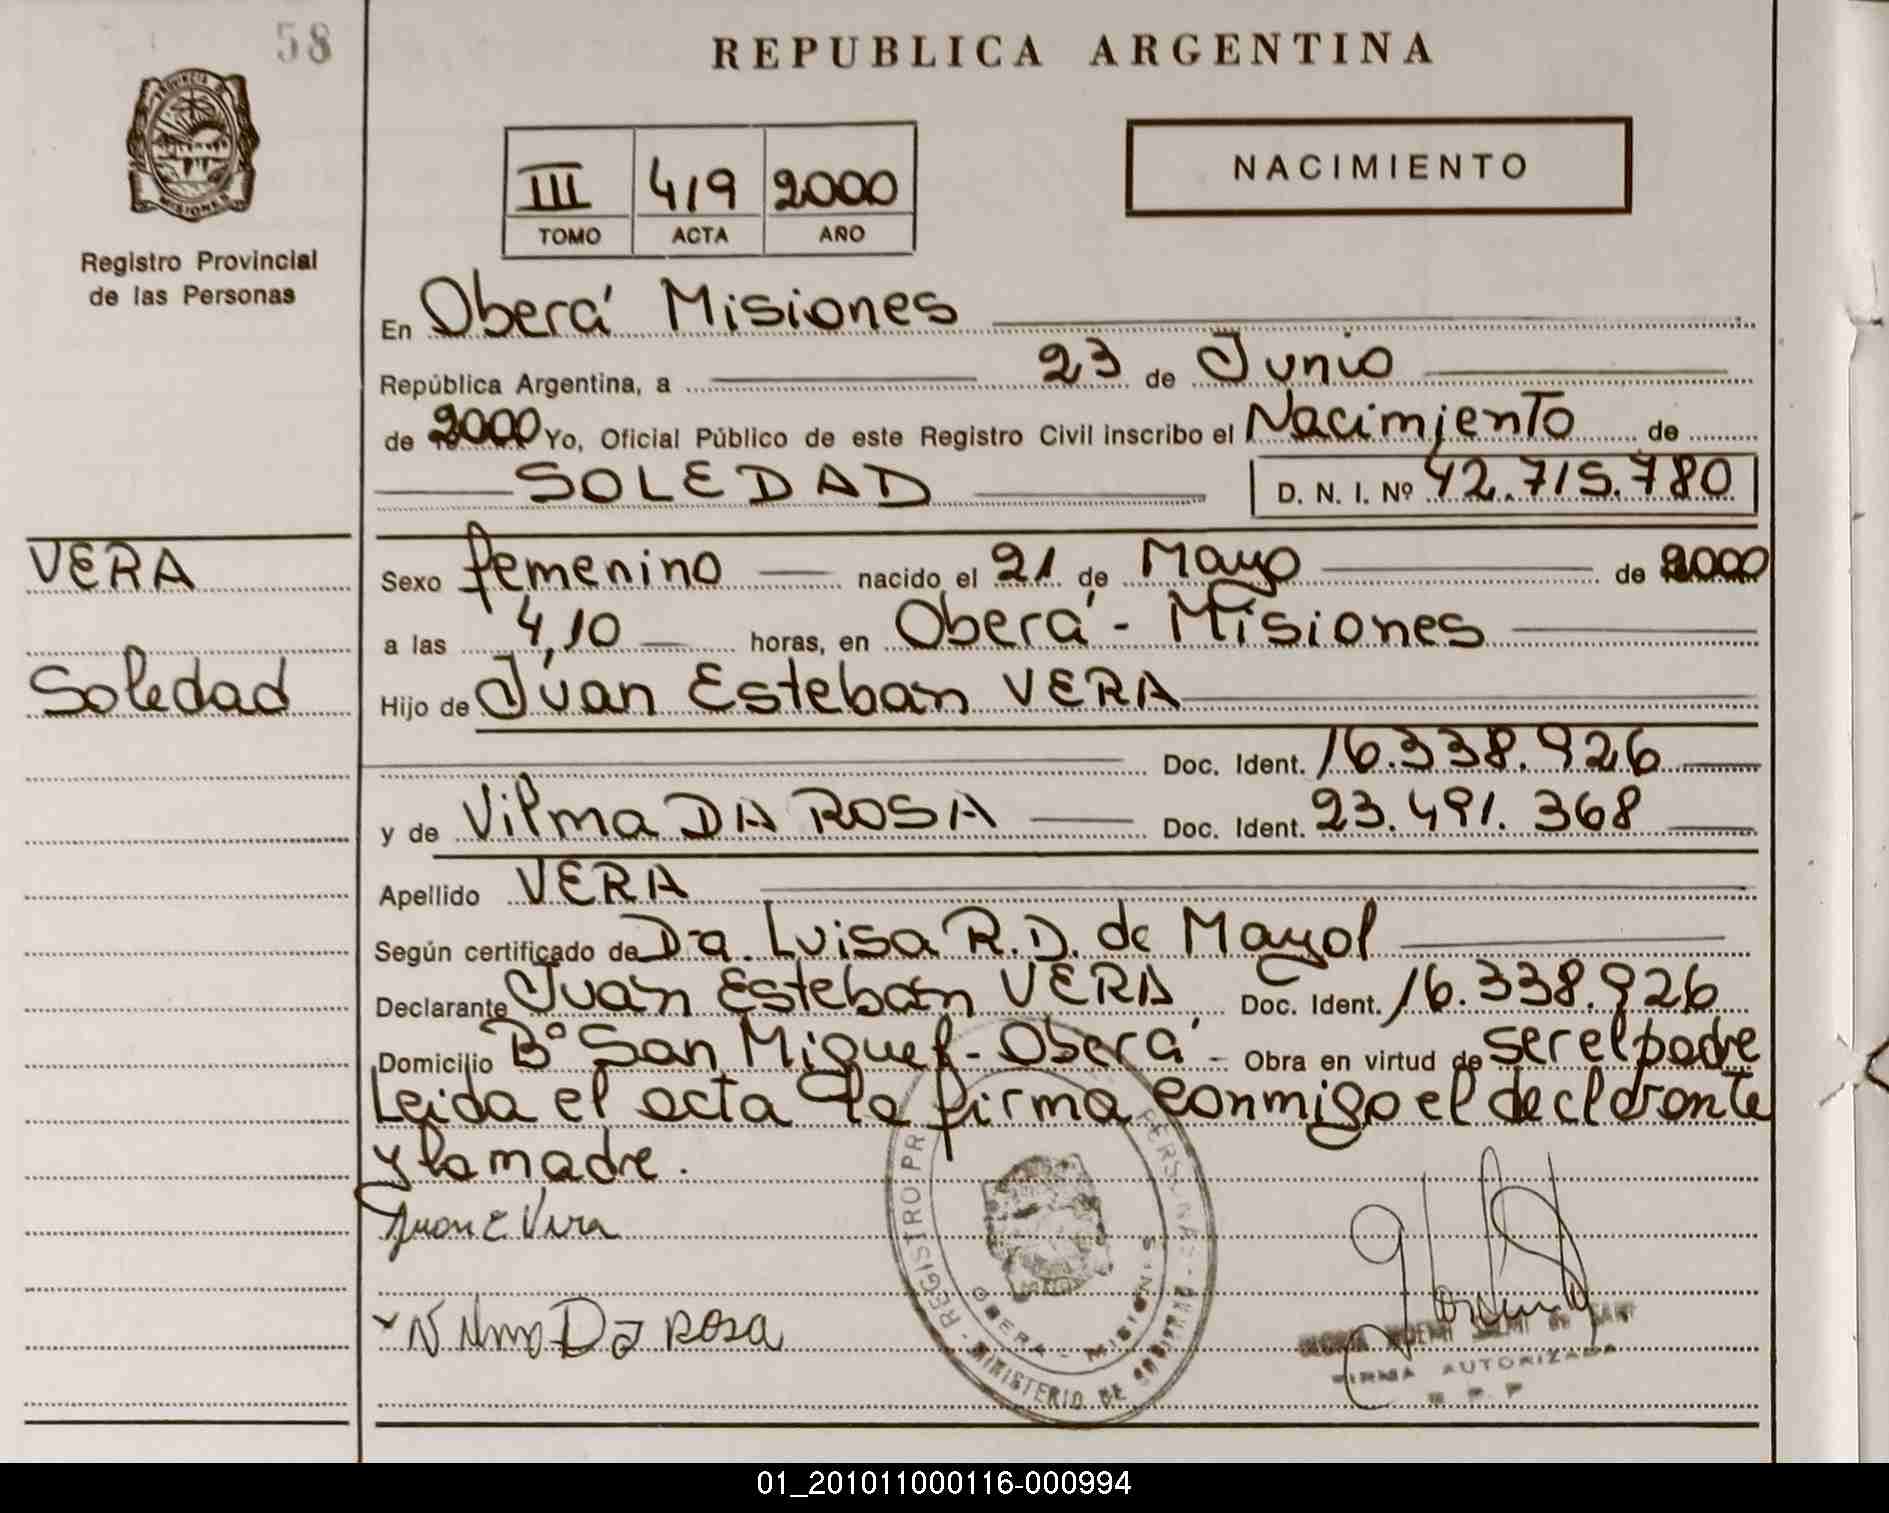 58
REPUBLICA ARGENTINA
PROVINCIA DE
MISIONES
Registro Provincial
de las Personas
III 419 2000
TOMO ACTA AÑO
NACIMIENTO
En Oberá Misiones
República Argentina, a 23 de Junio
de 2000 Yo, Oficial Público de este Registro Civil inscribo el Nacimiento de
SOLEDAD D. N. I. Nº 42.715.780
VERA
Soledad
Sexo femenino nacido el 21 de Mayo de 2000
a las 4,10 horas, en Oberá - Misiones
Hijo de Juan Esteban VERA
Doc. Ident. 16.338.926
y de Vilma DA ROSA Doc. Ident. 23.491.368
Apellido VERA
Según certificado de Dra. Luisa R.D. de Mayol
Declarante Juan Esteban VERA Doc. Ident. 16.338.926
Domicilio Bº San Miguel - Oberá - Obra en virtud de ser el padre
Leida el acta la firma conmigo el declarante
y la madre.
Juan E Vera
Da Rosa
REGISTRO PR PERSONAS - MINISTERIO DE GOBIERNO
OBERA - MISIONES
NOEMI
FIRMA AUTORIZADA
R. P. P
01_201011000116-000994